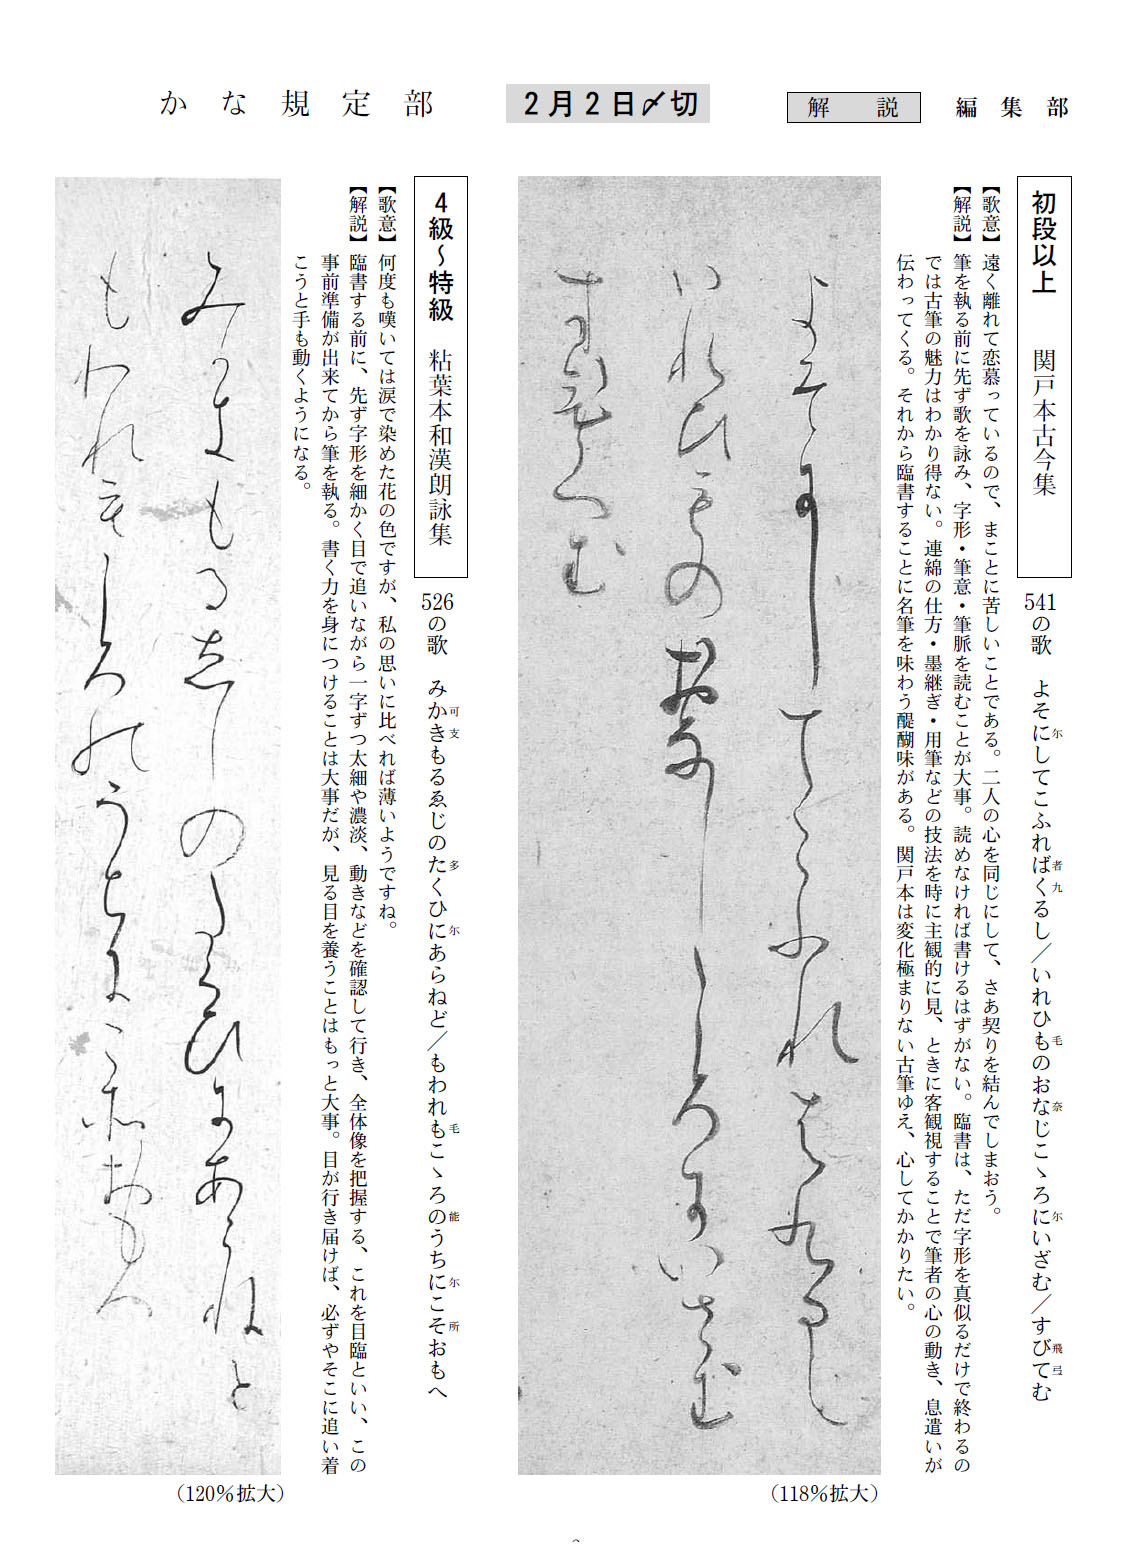 かな規定部
2月2日〆切
解説
編集部
初段以上 関戸本古今集
541の歌 よそにしてこふればくるし／いれひものおなじこゝろにいざむ／すびてむ
尓 者 九 毛 奈 尓 飛 弖
【歌意】遠く離れて恋慕っているので、まことに苦しいことである。二人の心を同じにして、さあ契りを結んでしまおう。
【解説】筆を執る前に先ず歌を詠み、字形・筆意・筆脈を読むことが大事。読めなければ書けるはずがない。臨書は、ただ字形を真似るだけで終わるの
では古筆の魅力はわかり得ない。連綿の仕方・墨継ぎ・用筆などの技法を時に主観的に見、ときに客観視することで筆者の心の動き、息遣いが
伝わってくる。それから臨書することに名筆を味わう醍醐味がある。関戸本は変化極まりない古筆ゆえ、心してかかりたい。
よそ尓して
こふれ者九るし
いれひ毛の
お奈し
こゝろ尓いさむ
す飛弖む
（118％拡大）
4級〜特級 粘葉本和漢朗詠集
526の歌 みかきもるゑじのたくひにあらねど／もわれもこゝろのうちにこそおもへ
可 支 多 尓 毛 能 尓 所
【歌意】何度も嘆いては涙で染めた花の色ですが、私の思いに比べれば薄いようですね。
【解説】臨書する前に、先ず字形を細かく目で追いながら一字ずつ太細や濃淡、動きなどを確認して行き、全体像を把握する、これを目臨といい、この
事前準備が出来てから筆を執る。書く力を身につけることは大事だが、見る目を養うことはもっと大事。目が行き届けば、必ずやそこに追い着
こうと手も動くようになる。
み可支もるゑしの多くひ尓あらねと
もわれ毛こゝろ能うち尓こ所おもへ
（120％拡大）